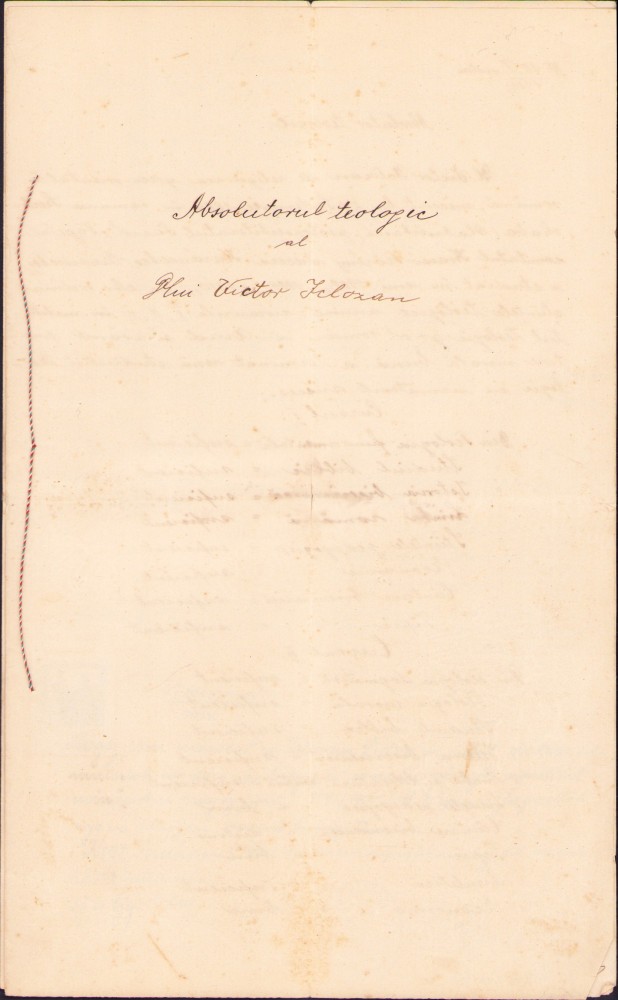 Absolutorul teologic
al
Dlui Victor Iclozan